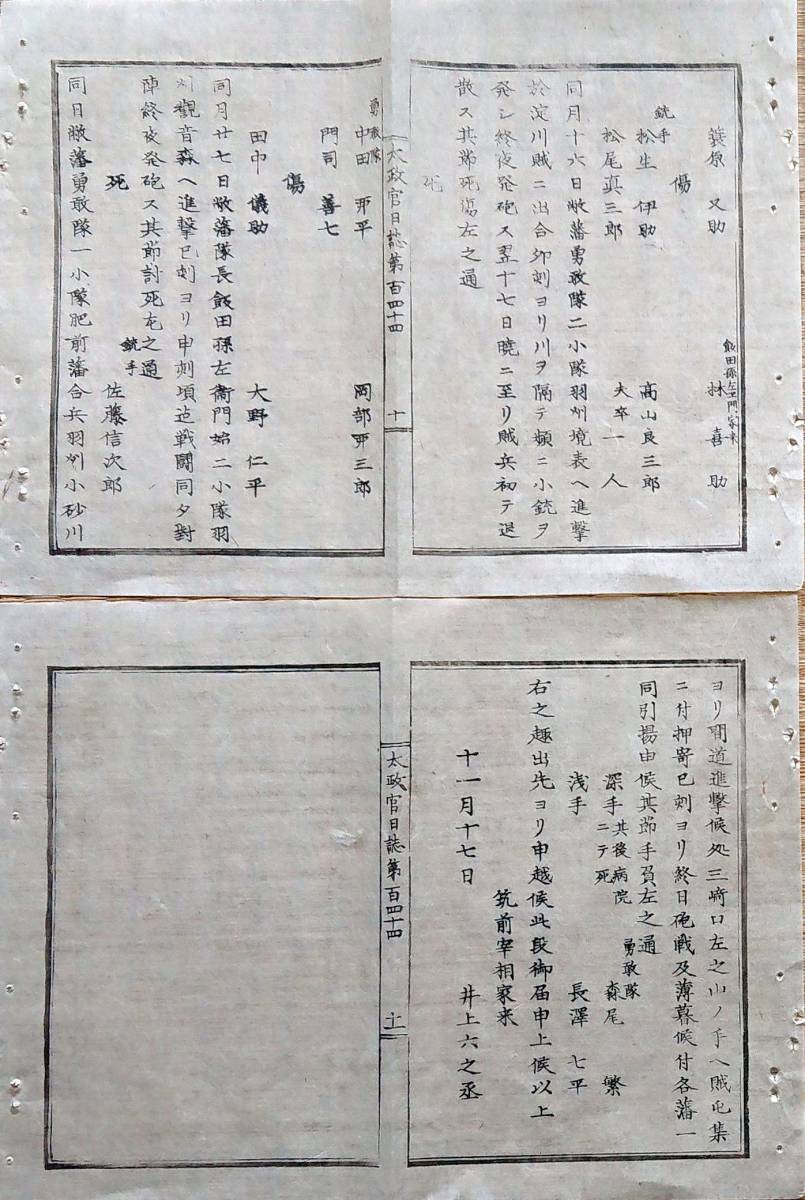 簑原 又助 飯田孫左エ門家来 林 喜助
傷
銃手 松生 伊助 高山良三郎
松尾真三郎 夫卒一人
同月十六日敝藩勇敢隊二小隊羽州境表ヘ進撃
於淀川賊ニ出合卯刻ヨリ川ヲ隔テ頻ニ小銃ヲ
発シ終夜発砲ス翌十七日曉ニ至リ賊兵初テ退
散ス其節死傷左之通
死
太政官日誌第百四十四 十
勇敢隊 中田 平 岡部 三郎
門司 善七
傷
田中 儀助 大野 仁平
同月廿七日敝藩隊長飯田孫左衞門始二小隊羽
州觀音森ヘ進撃巳刻ヨリ申刻頃迠戦闘同夕對
陣終夜発砲ス其節討死左之通
死 銃手 佐藤信次郎
同日敝藩勇敢隊一小隊肥前藩合兵羽州小砂川
ヨリ間道進撃候処三崎口左之山ノ手ヘ賊屯集
ニ付押寄巳刻ヨリ終日砲戦及薄暮候付各藩一
同引揚由候其節手負左之通
深手 其後病院ニテ死 勇敢隊 森尾 繁
浅手 長澤 七平
右之趣出先ヨリ申越候此段御届申上候以上
筑前宰相家来
十一月十七日 井上六之丞
太政官日誌第百四十四 十一